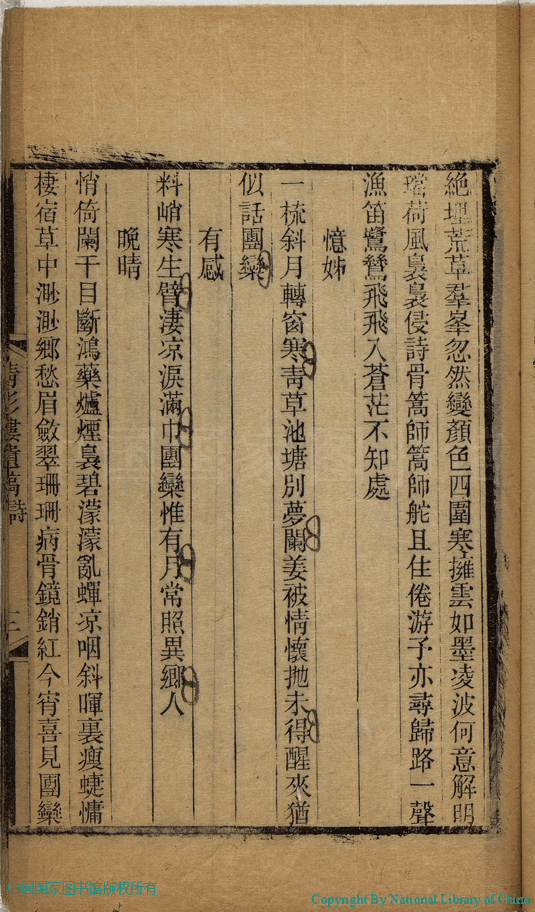 絶埋荒草羣峯忽然變顔色四圍寒擁雲如墨凌波何意解明
璫荷風裊裊侵詩骨篙師篙師舵且住倦游子亦尋歸路一聲
漁笛鷺鷥飛飛入蒼茫不知處
憶姊
一梳斜月轉窗寒靑草池塘別夢闌姜被情懷抛未得醒來猶
似話團欒
有感
料峭寒生臂凄凉淚滿巾團欒惟有月常照異鄉人
晚晴
悄倚闌干目斷鴻藥爐煙裊碧濛濛亂蟬凉咽斜暉裏瘦蜨慵
棲宿草中渺渺鄉愁眉斂翠珊珊病骨鏡銷紅今宵喜見團欒
樓遺稿詩
三
中國國家图书馆版权所有
Copyright By National Library of China